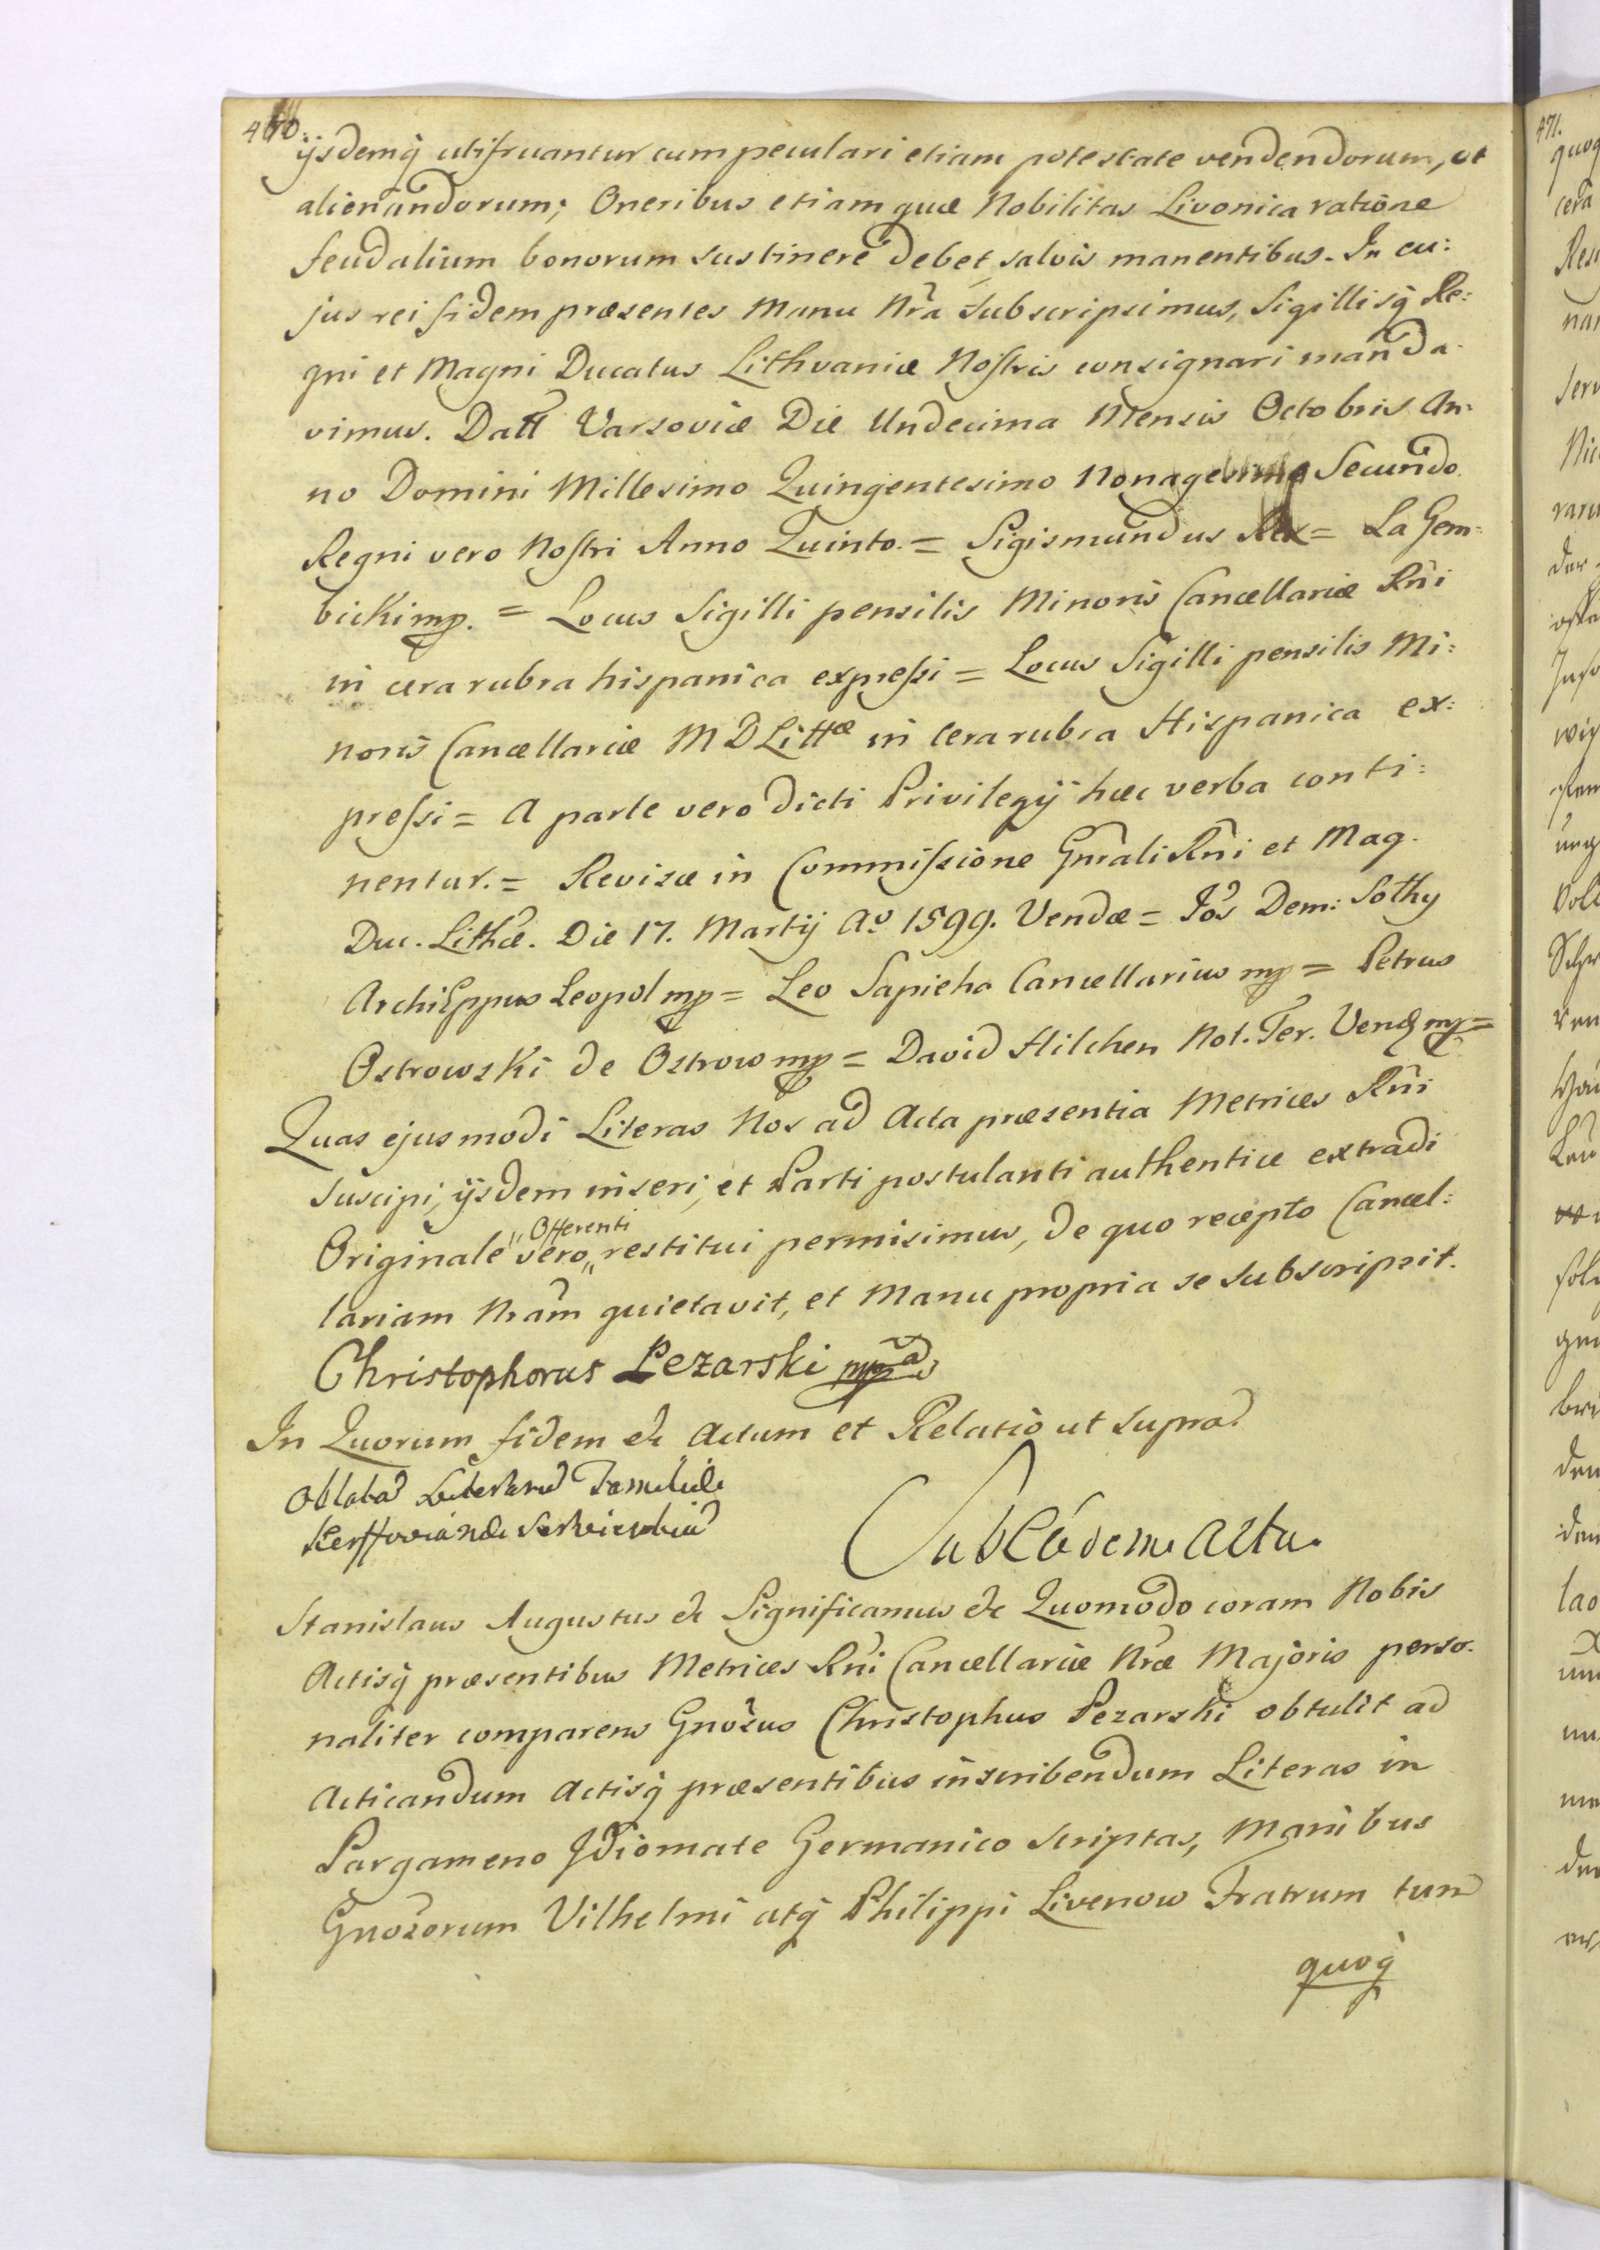 470.
ijsdemq̃ utifruantur cum peculari etiam potestate vendendorum, et
alienandorum; Oneribus etiam quæ Nobilitas Livonica ratione
feudalium bonorum sustinere debet, salvis manentibus. In cu:
jus rei fidem præsentes Manu Nrã subscripsimus, Sigillisq̃ Re:
gni et Magni Ducatus Lithvaniæ Nostris consignari manda-
vimus. Datt Varsoviæ Die Undecima Mensis Octobris An:
no Domini Millesimo Quingentesimo Nonagesimo Secundo
Regni vero Nostri Anno Quinto. = Sigismundus Rex = La Gem:
bicki mp. = Locus Sigilli pensilis Minoris Cancellariæ Rñi
in cera rubra hispanica expressi = Locus Sigilli pensilis Mi:
noris Cancellariæ M D Littæ in Cera rubra Hispanica ex:
pressi = A parte vero dicti Privilegij hæc verba conti:
nentur. = Revisæ in Commissione Gnrali Rñi et Mag.
Duc. Lithæ. Die 17. Martij Aº 1599. Vendæ = Jós Dem: Sothy
ArchiEppus Leopol mp = Leo Sapieha Cancellarius mp = Petrus
Ostrowski de Ostrow mp = David Hilchen Not. Ter. Vend mp =
Quas ejusmodi Literas Nos ad Acta præsentia Metrices Rñi
suscipi, ijsdem inseri, et Parti postulanti authentice extradi
Originale vero " Offerenti " restitui permisimus, de quo recepto Cancel:
lariam Nram quietavit, et Manu propria se subscripsit.
Christophorus Pezarski mp
In Quorum fidem &c Actum et Relatio ut supra
Oblata Literarum Familiæ
Sub Eódem Actu.
Stanislaus Augustus &c Significamus &c Quomodo coram Nobis
Actisq̃ præsentibus Metrices Rñi Cancellariæ Nræ Majoris perso:
naliter comparens Gnosus Christophus Pezarski obtulit ad
Acticandum Actisq̃ præsentibus inscribendum Literas in
Pargameno Jdiomate Germanico scriptas, Manibus
Gnosorum Vilhelmi atq̃ Philippi Livenow Fratrum tum
quoq̃
471.